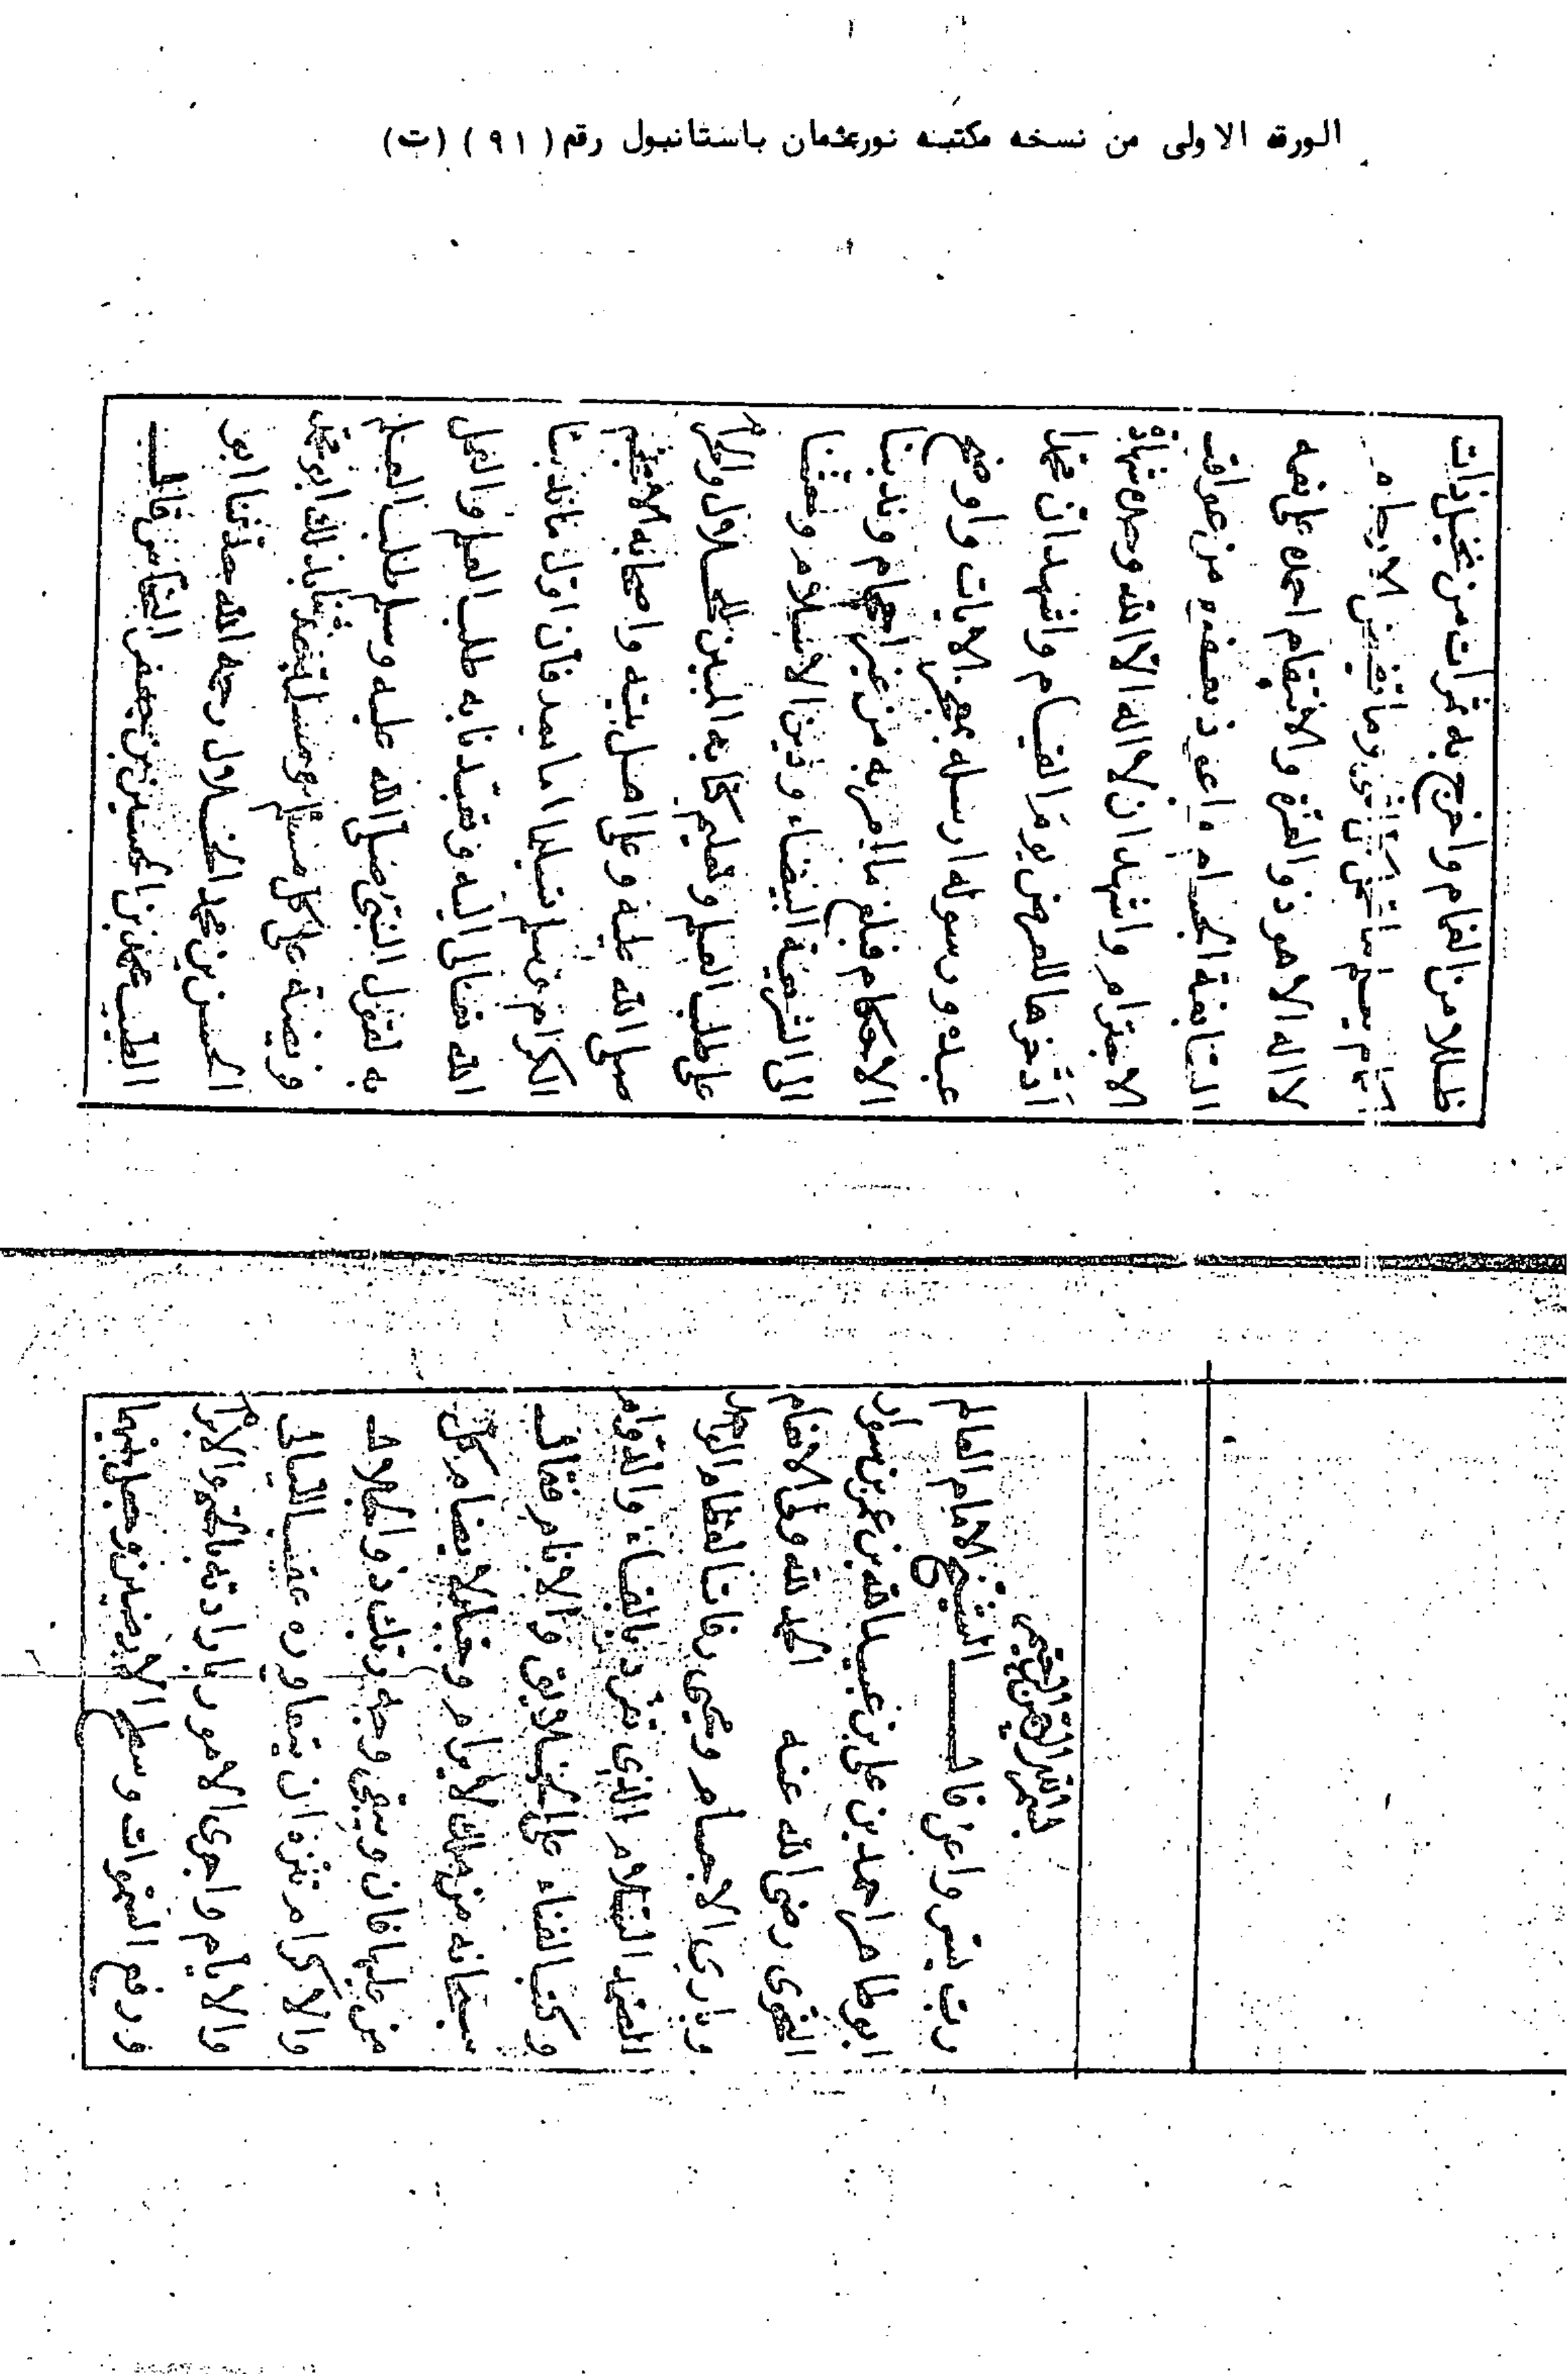 الورقة الاولى من نسخه مكتبه نور عثمان باستانبول رقم (٩١) (ت)
بسم الله الرحمن الرحيم
رب يسر واعن قال الشيخ الامام العالم
ابو طاهر احمد بن على بن عبيد الله بن عمر بن سوار
المقرى رضى الله عنه الحمد لله ولى الانعام
وبارى الاجسام ومحيى رفات العظام الواحد
الصمد السلام الذى تفرد بالبقاء والدوام
وكتب الفناء على الخلايق والانام فقال
سبحانه من ملك لا يرام وجبار لا يضام كل
من عليها فان ويبقى وجه ربك ذو الجلال
والاكرام تنزه ان يتعاوره عقب الليالى
والايام واجرى الامور بارادته بالحتم والابرام
ورفع السموات وسطح الارضين وجعل بينهما
ظللا من الغمام واخرج به ثمرات من مختلفات
لا اله الا هو ذو العزة والانتقام احمده على نعمه
السابغة الجسام واعوذ بعفوه من عواقب
الاجترام واشهد ان لا اله الا الله وحده شهادة
ادخرها للعرض يوم القيام واشهد ان محمدا
عبده ورسوله ارسله بمعجز الايات واوضح
الاحكام فبلغ ما امر به من غير احجام وندبنا
الى الشريعة البيضاء ودين الاسلام وحثنا
على طلب العلم وتعليم كتابه المبين للحلال والحرام
صلى الله عليه وعلى اهل بيته واصحابه
الكرام وسلم تسليما اما بعد فان اول ما ندبنا
الله تعالى اليه وتعبدنا به طلب العلم والعمل
به لقول النبى صلى الله عليه وسلم طلب العلم
فريضة على كل مسلم ومسلمة حدثنا بذلك ابو محمد
الحسن بن محمد الخلال رحمه الله حدثنا ابو
الطيب محمد بن الحسين بن جعفر النخاس قال